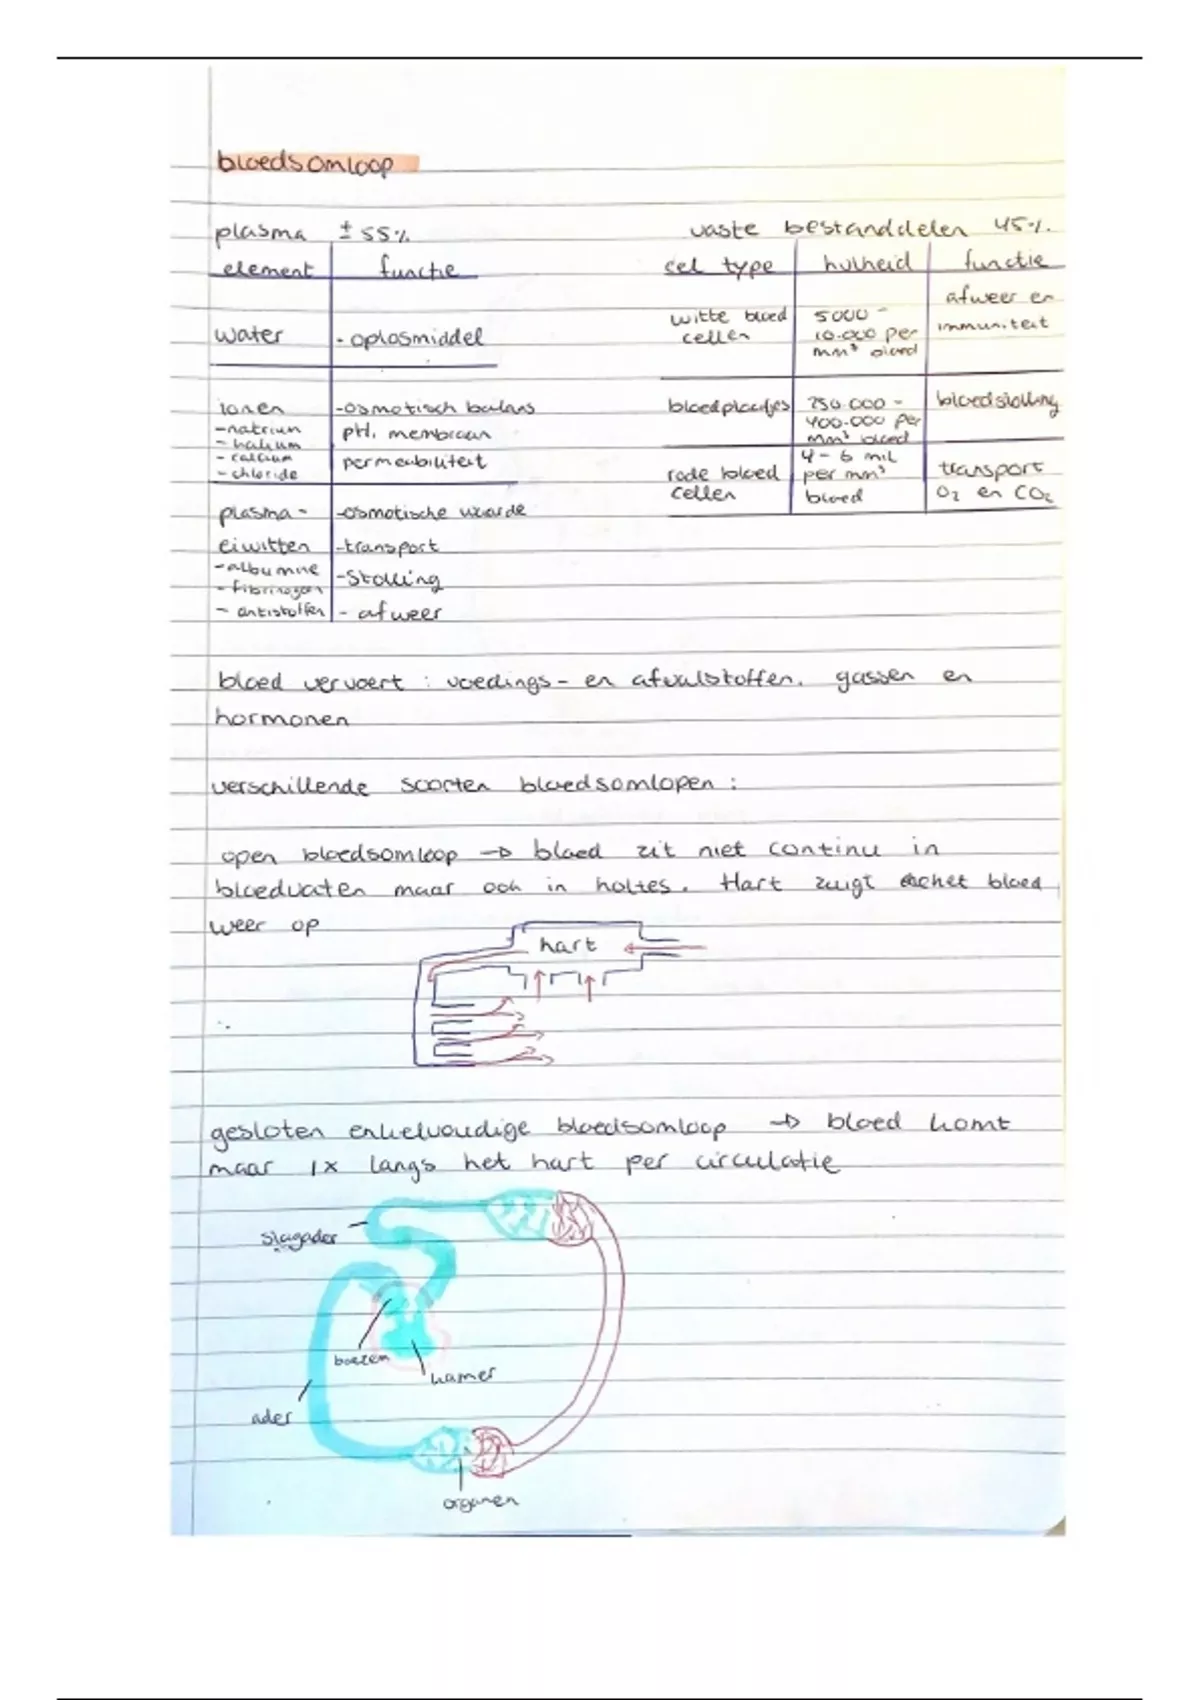 bloedsomloop
plasma ± 55%
element functie
water - oplosmiddel
ionen -osmotisch balans
-natrium pH, membraan
- kalium
- calcium permeabiliteit
- chloride
plasma- -osmotische waarde
eiwitten -transport
-albumine -Stolling
- fibrinogeen
- antistoffen - afweer
vaste bestanddelen 45%.
cel type hvlheid functie
witte bloed 5000 - afweer en
cellen 10.000 per immuniteit
mm³ bloed
bloedplaatjes 250.000 - bloedstolling
400.000 per
mm³ bloed
rode bloed 4 - 6 mil transport
cellen per mm³ O₂ en CO₂
bloed
bloed vervoert : voedings- en afvalstoffen, gassen en
hormonen
verschillende soorten bloedsomlopen :
open bloedsomloop → bloed zit niet continu in
bloedvaten maar ook in holtes. Hart zuigt het bloed
weer op
hart
gesloten enkelvoudige bloedsomloop → bloed komt
maar 1x langs het hart per circulatie
slagader
boezem
kamer
ader
organen